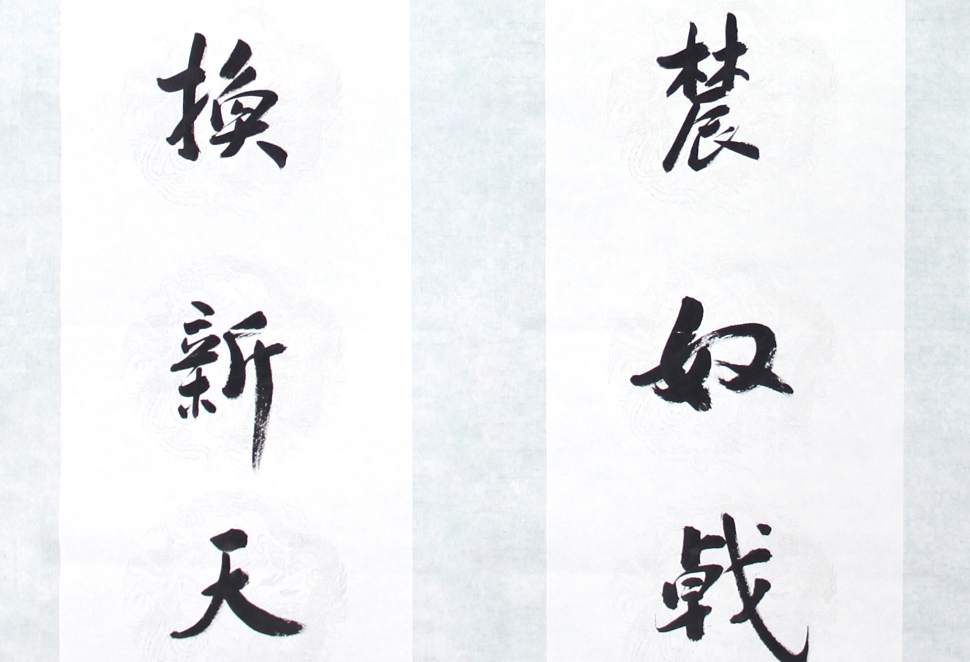 辳奴戟
換新天